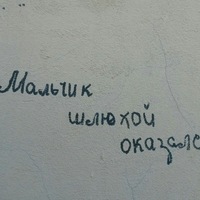 Мальчик
шлюхой
оказалс